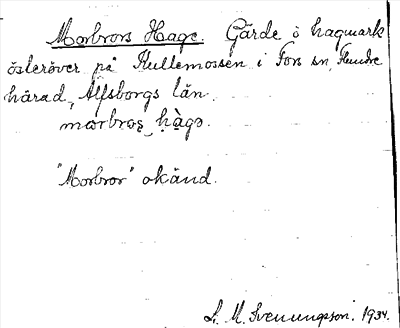 Morbrors Hage. Gärde o hagmark
österöver på Kullemossen i Fors sn, Flundre
härad, Älfsborgs län.
morbros hàgə.
"Morbror" okänd.
S. M. Svenungsson. 1934.